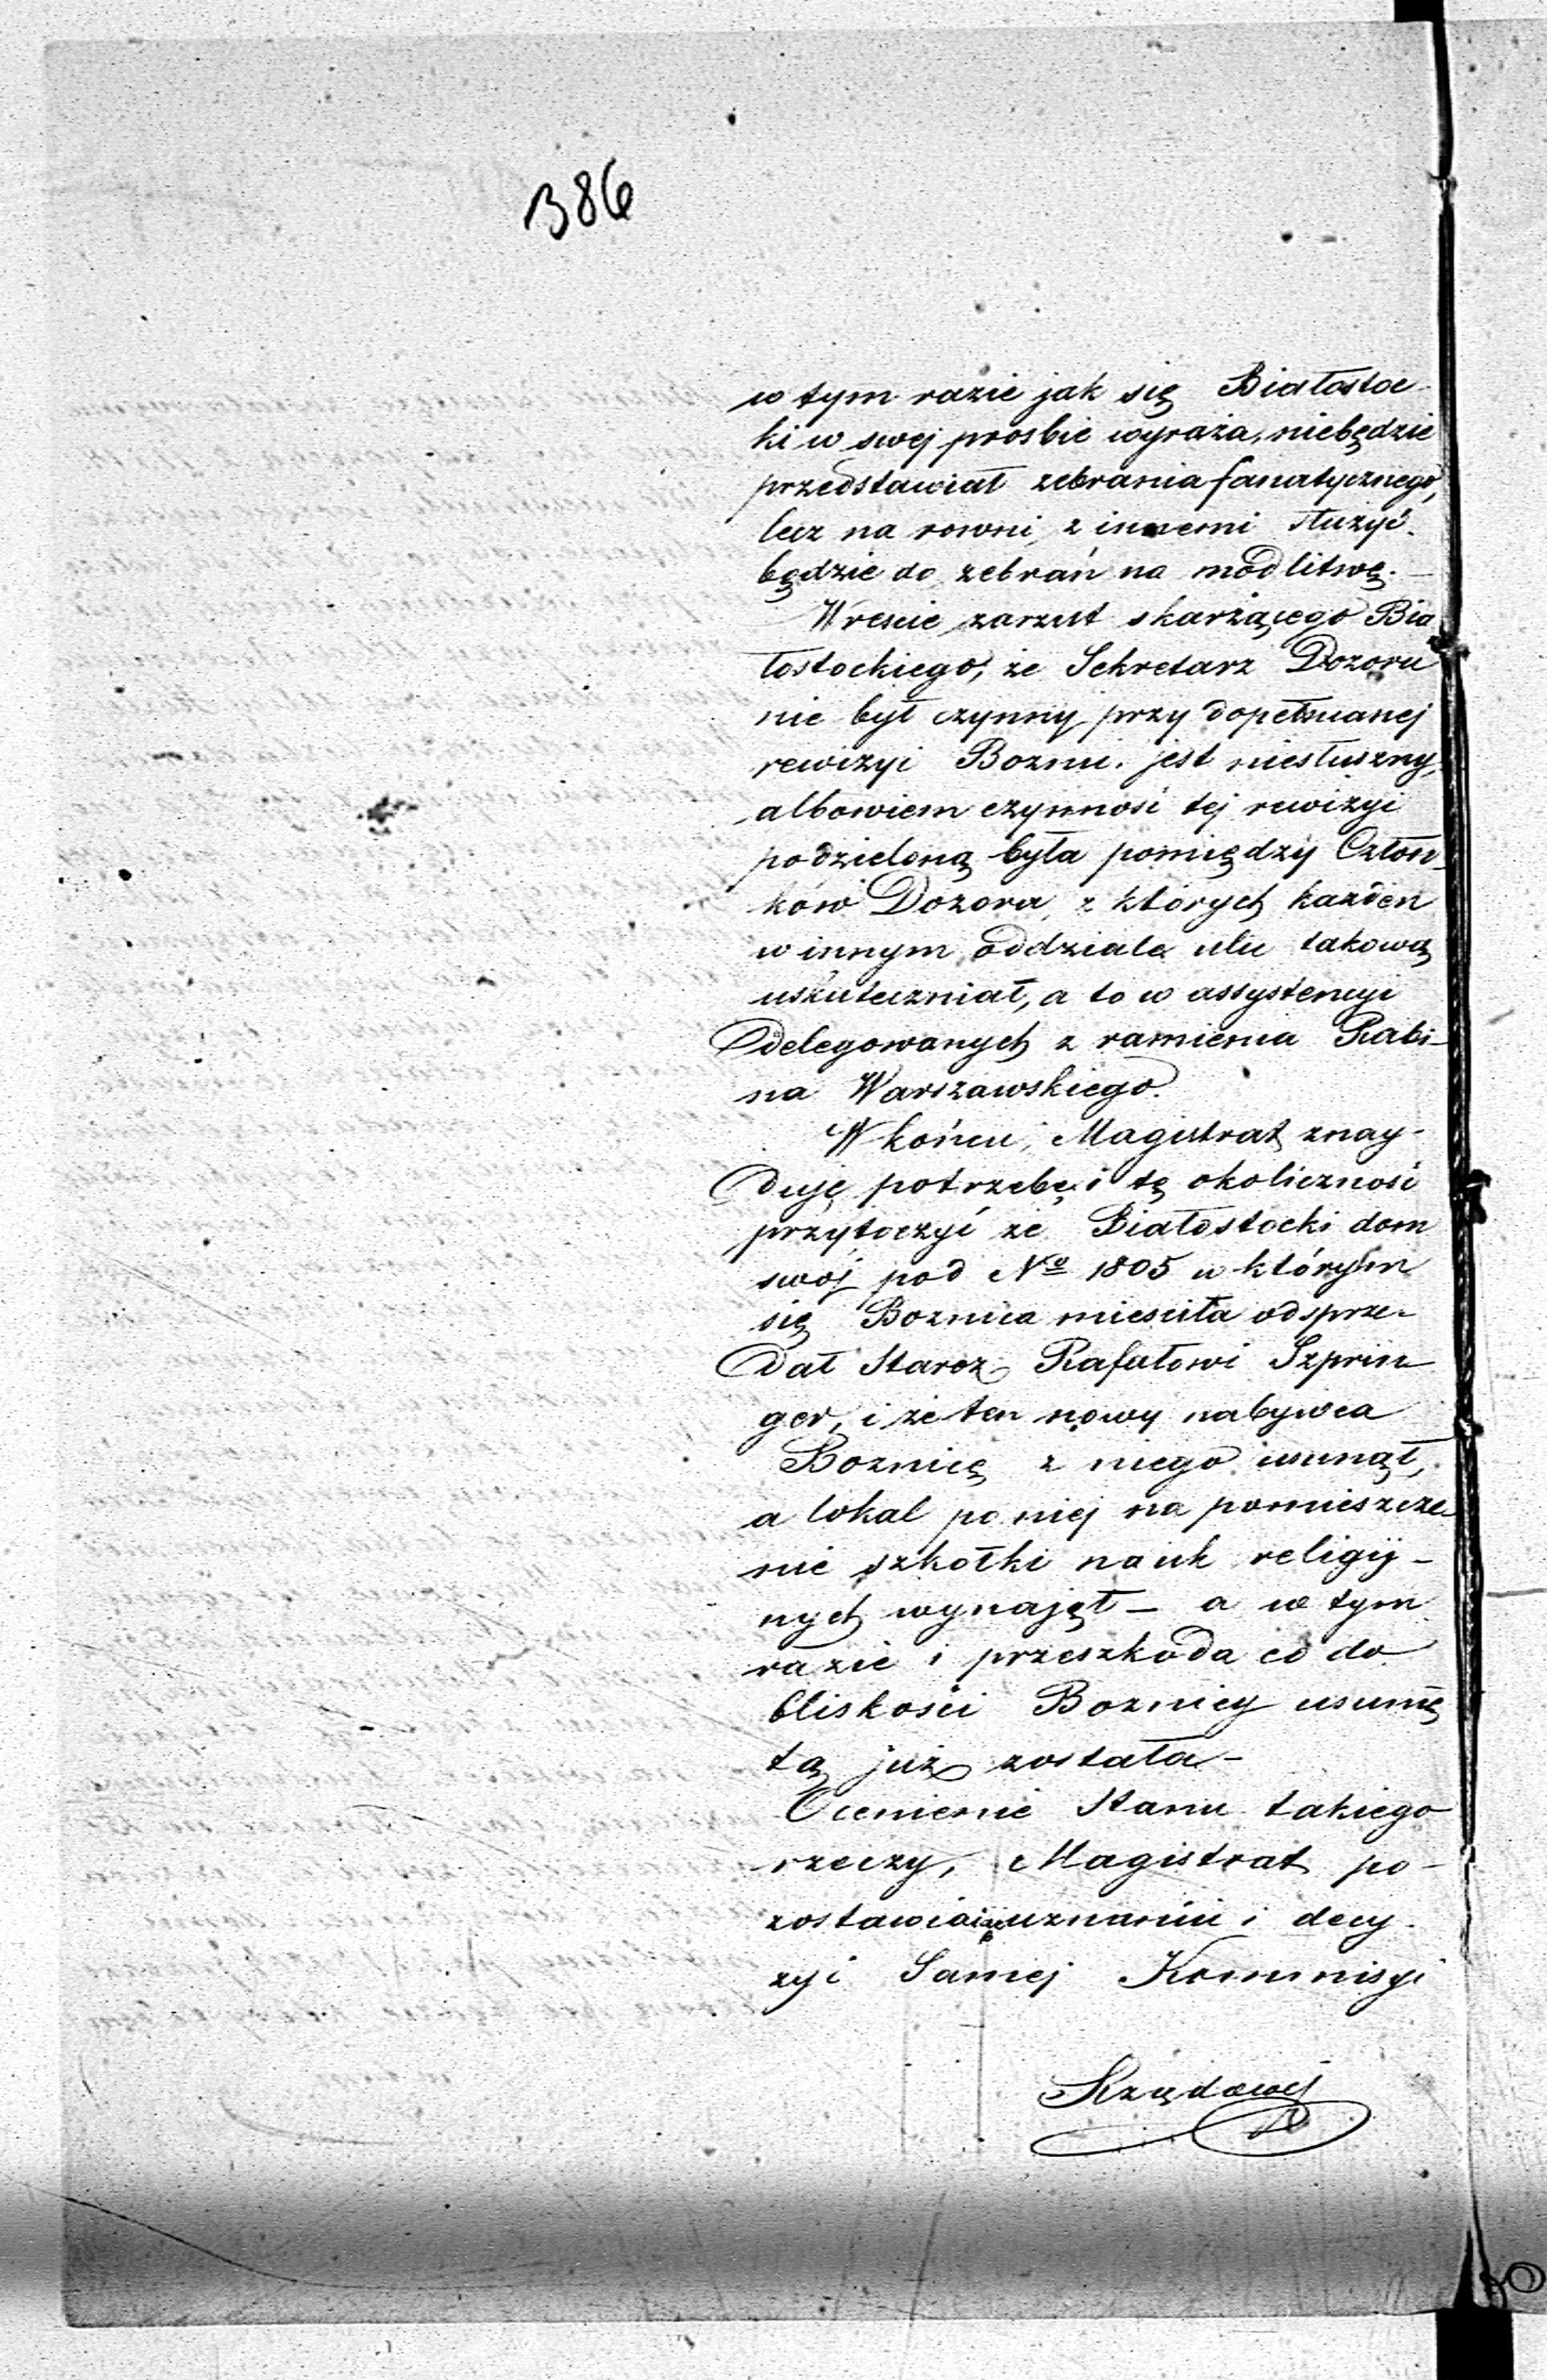 386
w tym razie jak się Białostoc-
ki w swej prosbie wyraża, niebędzie
przedstawiał zebrania fanatycznego,
lecz na rowni z innemi służyć
będzie do zebrań na modlitwę.—
Wrescie zarzut skarżącego Bia
łostockiego, że Sekretarz Dozoru
nie był czynny przy dopełnianej
rewizyi Boznic. jest niesłuszny,
albowiem czynność tej rewizyi
podzieloną była pomiędzy Człon-
ków Dozoru, z których każden
w innym oddziale ulic takową
uskuteczniał, a to w assystencyi
delegowanych z ramienia Rabi-
na Warszawskiego.
W końcu, Magistrat znay-
duję potrzebę i tę okoliczność
przytoczyć że Białostocki dom
swój pod No 1805 w którym
się Boznica miesciła odsprze-
dał Staroz. Rafałowi Szprin-
ger, i że ten nowy nabywca
Boznicę z niego usunął,
a lokal po niej na pomieszcze-
nie szkołki nauk religij-
nych wynajął — a w tym
razie i przeszkoda co do
bliskości Boznicy usunię
tą już została—
Ocenienie Stanu takiego
rzeczy, Magistrat po-
zostawia uznaniu i decy-
zyi Samej Kommisyi
Rządowej